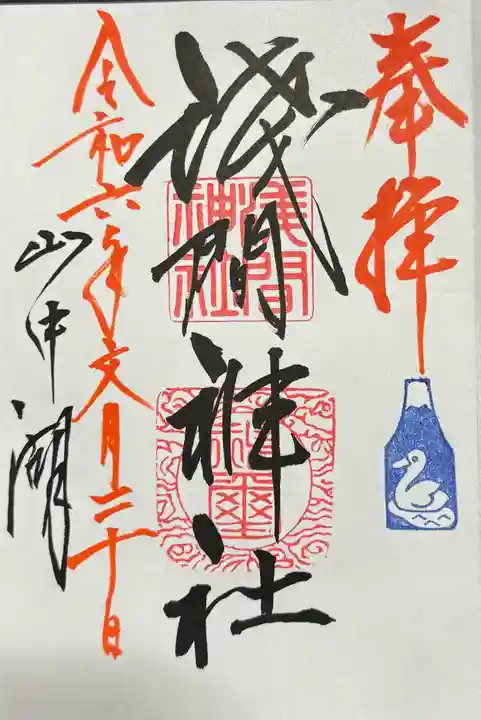 奉拝
淺間神社
淺間神社
令和六年文月二十日
山中湖